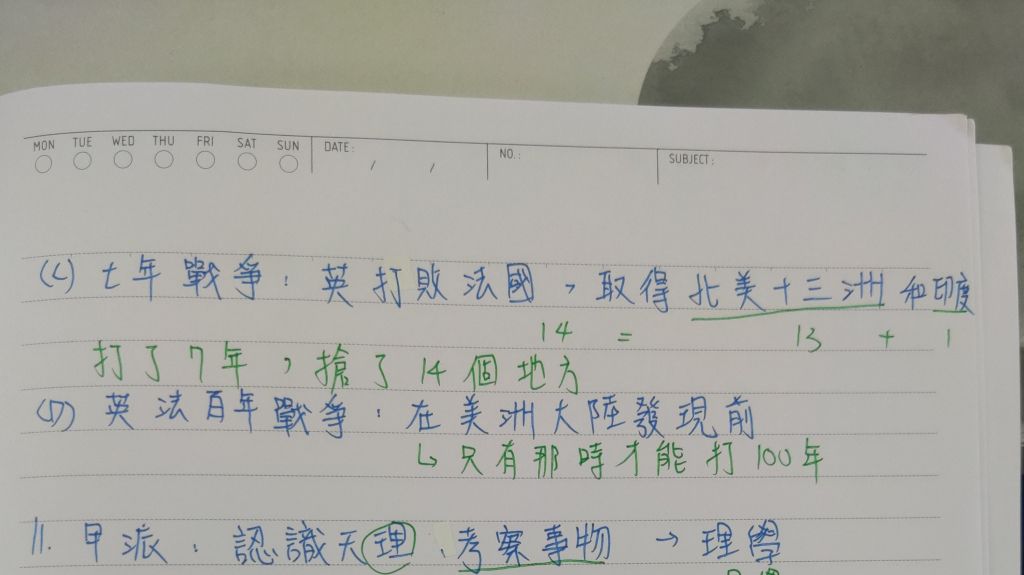 MON TUE WED THU FRI SAT SUN DATE: / / NO.: SUBJECT:
(C) 七年戰爭：英打敗法國，取得北美十三洲和印度
14 = 13 + 1
打了7年，搶了14個地方
(D) 英法百年戰爭：在美洲大陸發現前
↳只有那時才能打100年
11. 甲派：認識天理、考察事物 → 理學